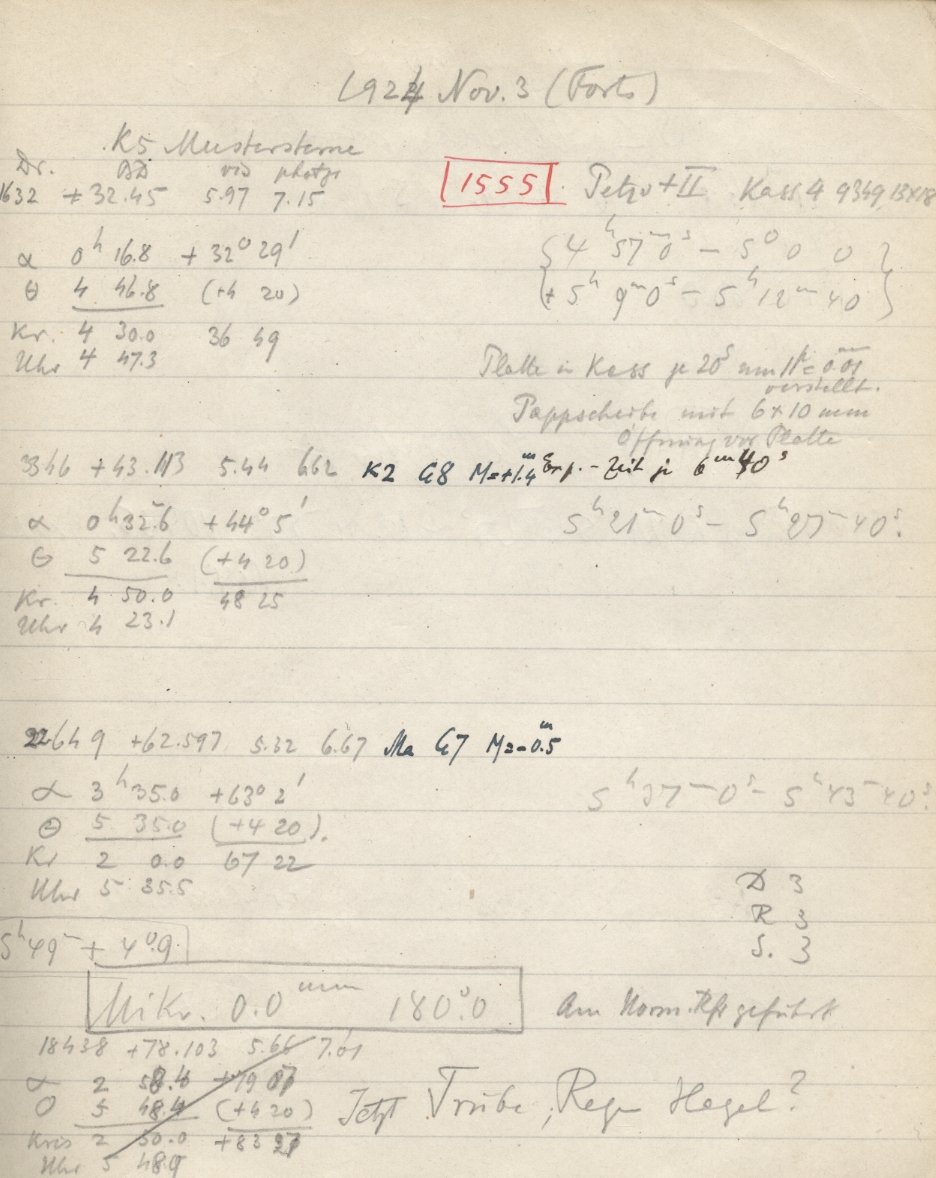 1924 Nov. 3 (Forts)
K5 Mustersterne
Dr. BD vis photgr
1632 +32.45 5.97 7.15
1555 Petzv + II Kass 4 9349, 13×18
α 0h 16.8 +32° 29'
θ 4 46.8 (+4 20)
Kr. 4 30.0 36 49
Uhr 4 47.3
{4h 57m 0s – 5 0 0}
{+ 5h 9m 0s – 5h 12m 40}
Platte in Kass je 20s um 1p = 0.01mm
verstellt.
Pappscheibe mit 6×10 mm
Öffnung vor Platte
3346 +43.113 5.44 6.62 K2 G8 M=+1.4m Exp.-Zeit je 6m 40s
α 0h 32.6 +44° 5'
θ 5 22.6 (+4 20)
Kr. 4 50.0 48 25
Uhr 4 23.1
5h 21m 0s – 5h 27m 40s.
22649 +62.597 5.32 6.67 Ma G7 M=-0.5m
α 3h 35.0 +63° 2'
θ 5 35.0 (+4 20).
Kr 2 0.0 67 22
Uhr 5 35.5
5h 37m 0s – 5h 43m 40s.
D 3
R 3
S. 3
5h 49m + 4°.9
Mikr. 0.0 mm 180°.0
Am Norm. geführt
18438 +78.103 5.66 7.01
α 2 58.4 +79 07
θ 5 48.4 (+4 20)
Kris 2 50.0 +83 27
Uhr 5 48.9
Jetzt Trübe, Regen Hagel?